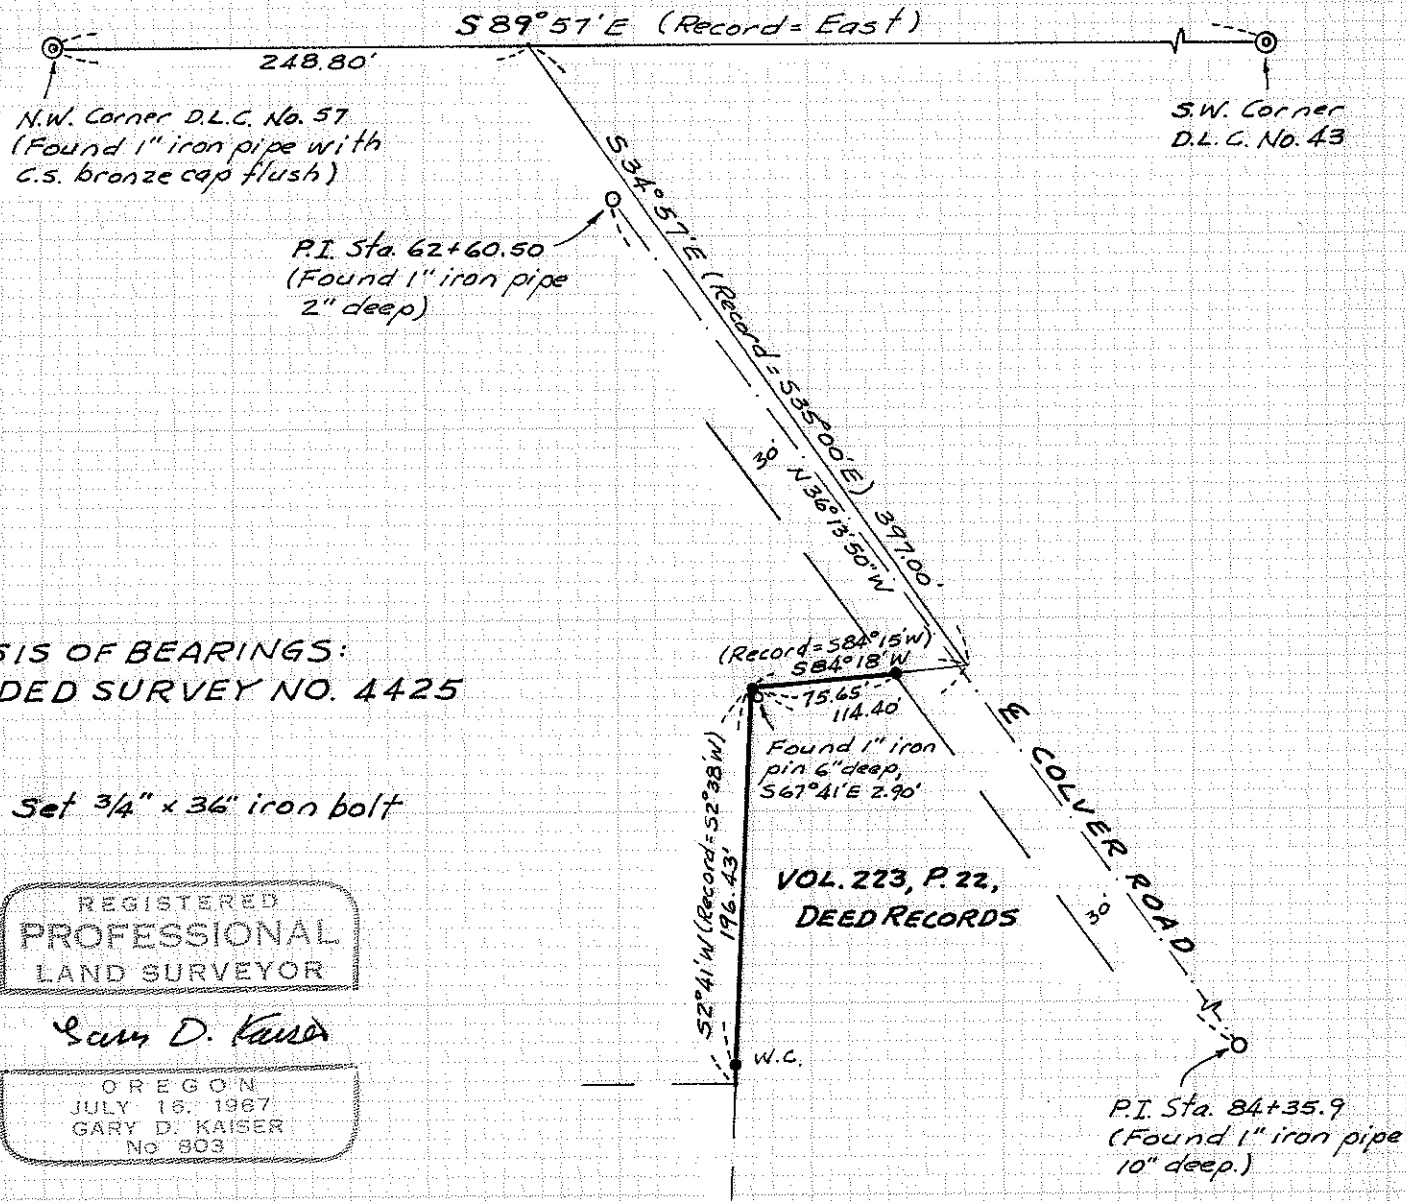 S89°57'E (Record = East)
248.80'
N.W. Corner D.L.C. No. 57
(Found 1" iron pipe with
C.S. bronze cap flush)
S.W. Corner
D.L.C. No. 43
S34°57'E (Record = S35°00'E) 397.00'
P.I. Sta. 62+60.50
(Found 1" iron pipe
2" deep)
30'
N36°13'50"W
SIS OF BEARINGS:
DED SURVEY NO. 4425
(Record = S84°15'W)
S84°18'W
75.65'
114.40'
Found 1" iron
pin 6" deep,
S67°41'E 2.90'
℄ COLVER ROAD
Set 3/4" x 36" iron bolt
S2°41'W (Record = S2°38'W)
196.43'
VOL. 223, P. 22,
DEED RECORDS
30'
REGISTERED
PROFESSIONAL
LAND SURVEYOR
Gary D. Kaiser
OREGON
JULY 16, 1967
GARY D. KAISER
No 803
W.C.
P.I. Sta. 84+35.9
(Found 1" iron pipe
10" deep.)